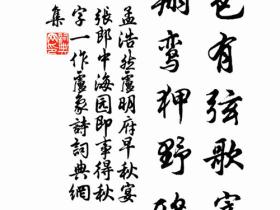 邑有弦歌宰
翔鸾狎野
孟浩然盧明府早秋宴
張郎中海园即事得秋
字一作盧象詩詞典網
集